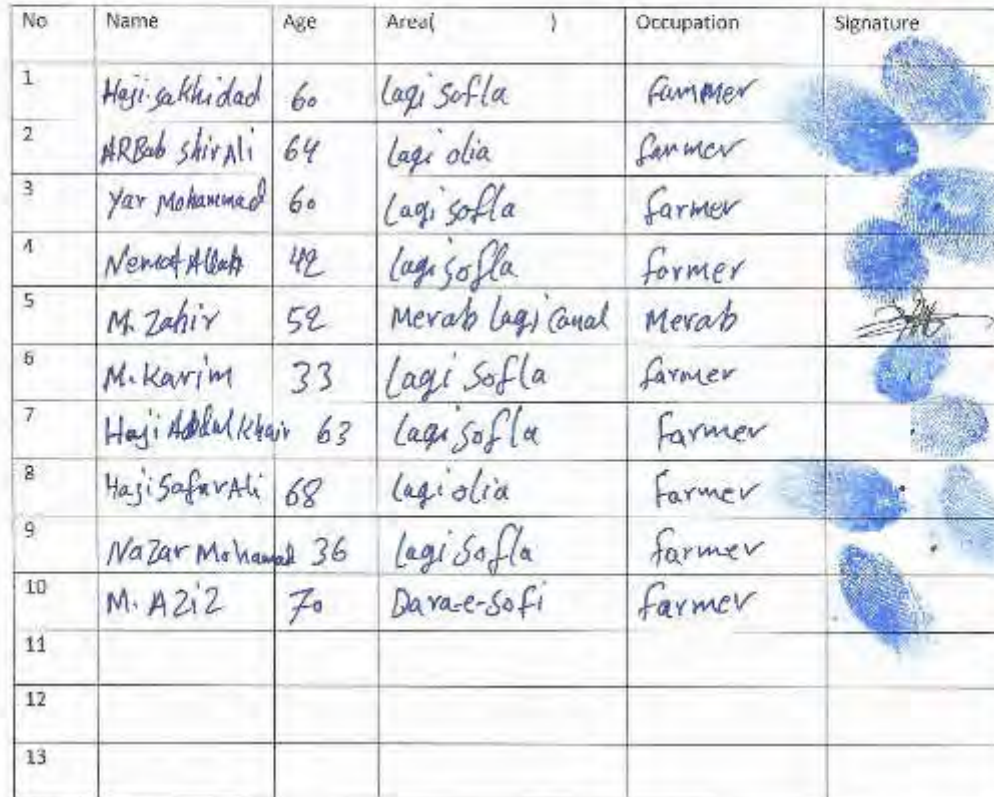 No Name Age Area( ) Occupation Signature
1 Haji.sakhidad 60 Lagi Sofla farmer
2 ARBab shir Ali 64 Lagi olia farmer
3 Yar Mohammad 60 Lagi sofla farmer
4 Nemat Allah 42 Lagi sofla farmer
5 M. Zahir 52 Merab Lagi Canal Merab
6 M. Karim 33 Lagi Sofla farmer
7 Haji Abdul Khair 63 Lagi Sofla farmer
8 Haji Safar Ali 68 Lagi olia farmer
9 Nazar Mohamad 36 Lagi Sofla farmer
10 M. AZiZ 70 Dara-e-Sofi farmer
11
12
13